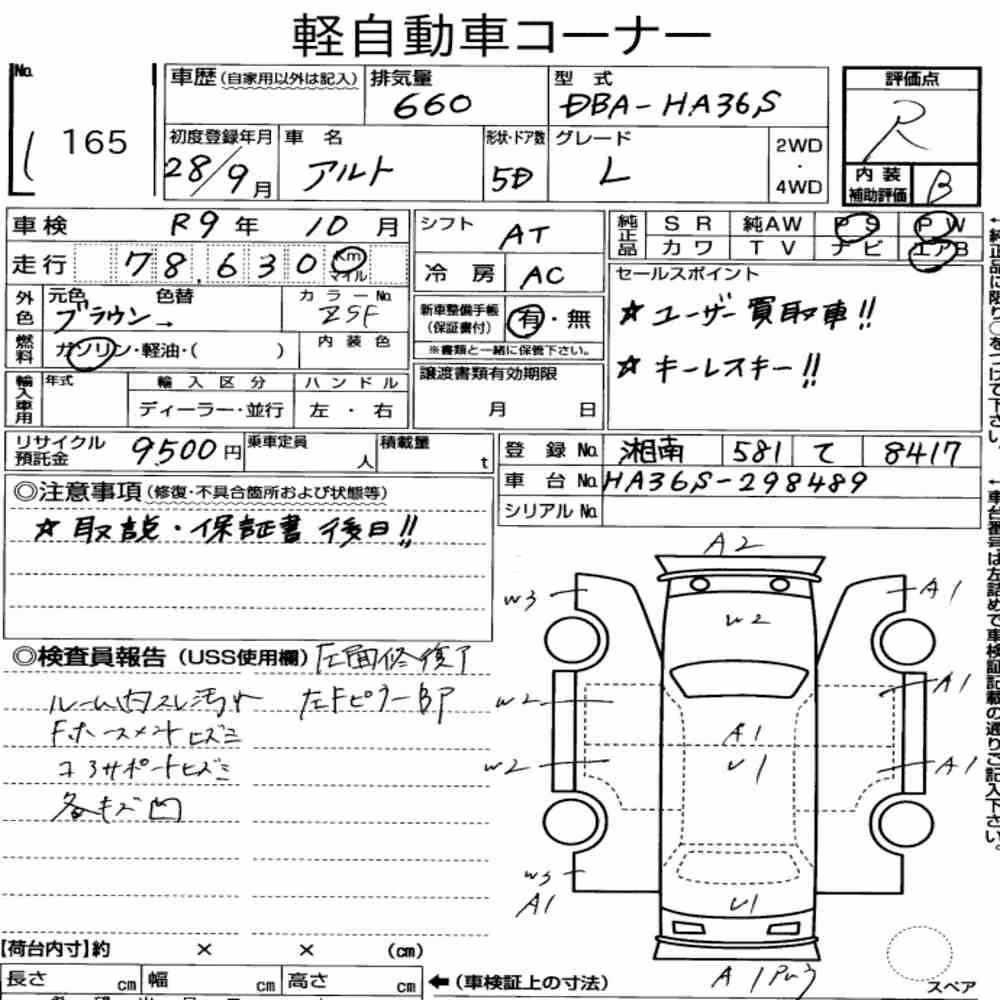 軽自動車コーナー
No. 165
車歴 (自家用以外は記入) 排気量 660 型式 DBA-HA36S 評価点 R
初度登録年月 28/9月 車名 アルト 形状・ドア数 5D グレード L 2WD・4WD 内装補助評価 B
車検 R9年 10月
走行 78,630 Km マイル
外色 元色 ブラウン→ 色替 カラーNo. ZSF
燃料 ガソリン・軽油・( ) 内装色
輸入車用 年式 輸入区分 ディーラー・並行 ハンドル 左・右
シフト AT
冷房 AC
新車整備手帳(保証書付) 有・無
※書類と一緒に保管下さい。
譲渡書類有効期限
月 日
純正品 SR 純AW PS PW
カワ TV ナビ エアB
セールスポイント
☆ユーザー買取車!!
☆キーレスキー!!
←純正品に限り○をつけて下さい。
リサイクル預託金 9500円 乗車定員 人 積載量 t
登録No. 湘南 581 て 8417
車台No. HA36S-298489
シリアルNo.
←車台番号は左詰めで車検証記載の通りご記入下さい。
◎注意事項 (修復・不具合箇所および状態等)
☆取説・保証書後日!!
◎検査員報告 (USS使用欄)
ルーム内スレ汚れ 左FピラーBP
コアサポートヒズミ
各キズ凹
A2
W3 A1
U2
W2 A1
A1
U1
W2 A1
W3
A1
U1
A1
スペア
【荷台内寸】約 × × (cm)
長さ cm 幅 cm 高さ cm ←(車検証上の寸法)